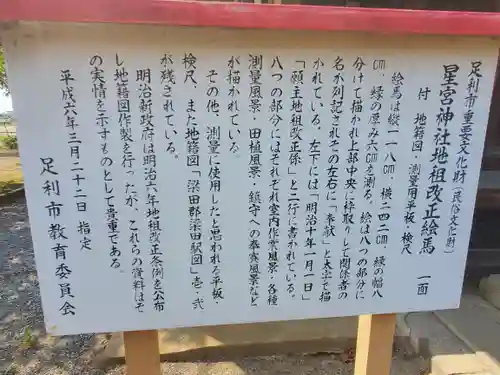 足利市重要文化財(民俗文化財)
星宮神社地租改正絵馬 一面
付 地籍図・測量用平板・検尺
絵馬は縦一一八㎝、横二四二㎝、縁の幅八
㎝、縁の厚み六㎝を測る。絵は八つの部分に
分けて描かれ上部中央に枠取りして関係者の
名が列記されその左右に「奉献」と大字で描
かれている。左下には「明治十年一月一日」
「願主地租改正係」と二行に書かれている。
八つの部分にはそれぞれ室内作業風景・各種
測量風景・田植風景・鎮守への奉賽風景など
が描かれている。
その他、測量に使用したと思われる平板・
検尺、また地籍図「梁田郡梁田駅図」壱・弐
が残されている。
明治新政府は明治六年地租改正条例を公布
し地籍図作製を行ったが、これらの資料はそ
の実情を示すものとして貴重である。
平成六年三月二十二日 指定
足利市教育委員会